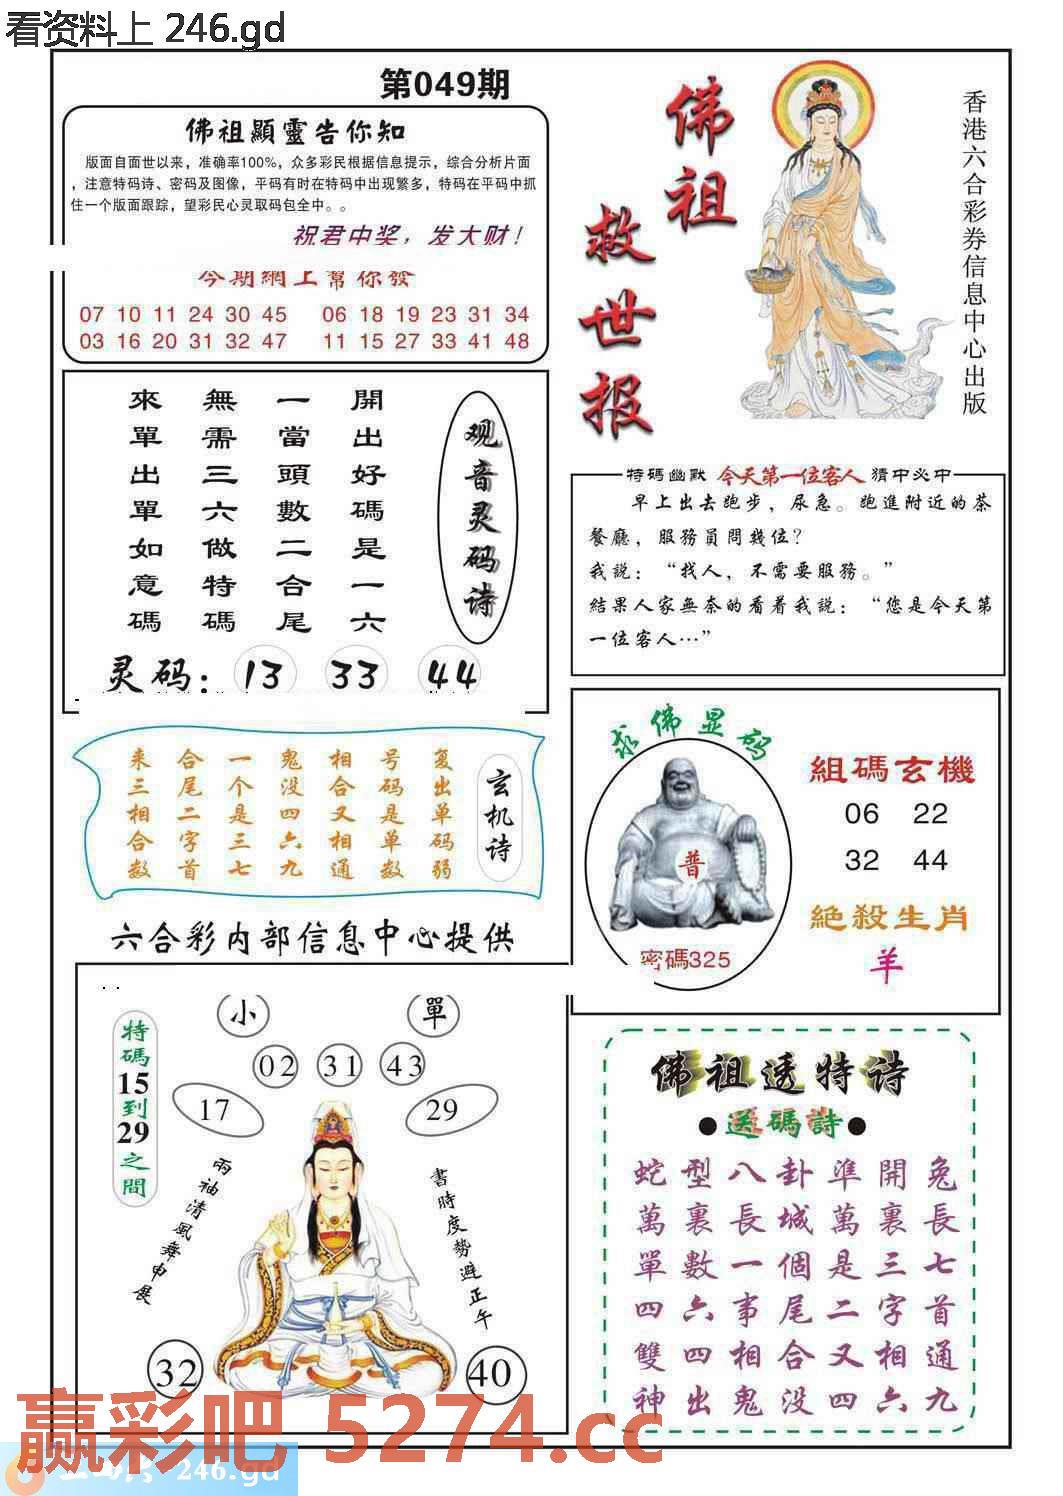 看资料上 246.gd
第049期
佛祖顯靈告你知
版面自面世以来，准确率100%，众多彩民根据信息提示，综合分析片面
，注意特码诗、密码及图像，平码有时在特码中出现繁多，特码在平码中抓
住一个版面跟踪，望彩民心灵取码包全中。。
祝君中奖，发大财！
今期網上幫你發
07 10 11 24 30 45 06 18 19 23 31 34
03 16 20 31 32 47 11 15 27 33 41 48
佛祖
救世报
香港六合彩券信息中心出版
观音灵码诗
開出好碼是一六
一當頭數二合尾
無需三六做特碼
來單出單如意碼
灵码：13 33 44
特碼幽默 今天第一位客人 猜中必中
早上出去跑步，尿急。跑進附近的茶
餐廳，服務員問幾位？
我説：“找人，不需要服務。”
結果人家無奈的看着我説：“您是今天第
一位客人…”
玄机诗
复出单码弱
号码是单数
相合又相通
鬼没四六九
一个是三七
合尾二字首
来三相合数
求佛显码
普
密碼325
組碼玄機
06 22
32 44
絶殺生肖
羊
六合彩内部信息中心提供
特碼15到29之間
小 單
02 31 43
17 29
兩袖清風舞申展
書時度勢避正午
32 40
佛祖透特诗
●送碼詩●
蛇型八卦準開兔
萬裏長城萬裏長
單數一個是三七
四六事尾二字首
雙四相合又相通
神出鬼没四六九
赢彩吧 5274.cc
246.gd